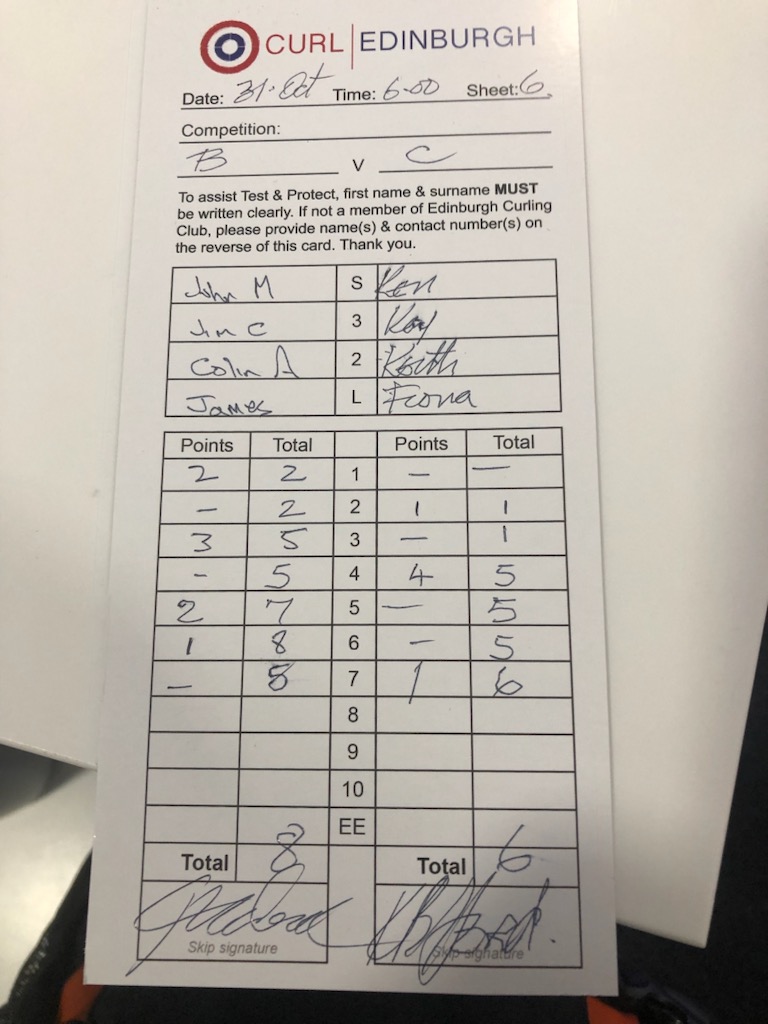 CURL | EDINBURGH
Date: 31. Oct Time: 6-00 Sheet: 6.
Competition:
B v C
To assist Test & Protect, first name & surname MUST
be written clearly. If not a member of Edinburgh Curling
Club, please provide name(s) & contact number(s) on
the reverse of this card. Thank you.
John M S Ken
Jim C 3 Kay
Colin A 2 Keith
James L Fiona
Points Total Points Total
2 2 1 — —
- 2 2 1 1
3 5 3 — 1
- 5 4 4 5
2 7 5 — 5
1 8 6 - 5
— 8 7 1 6
8
9
10
EE
Total 8 Total 6
Skip signature Skip signature